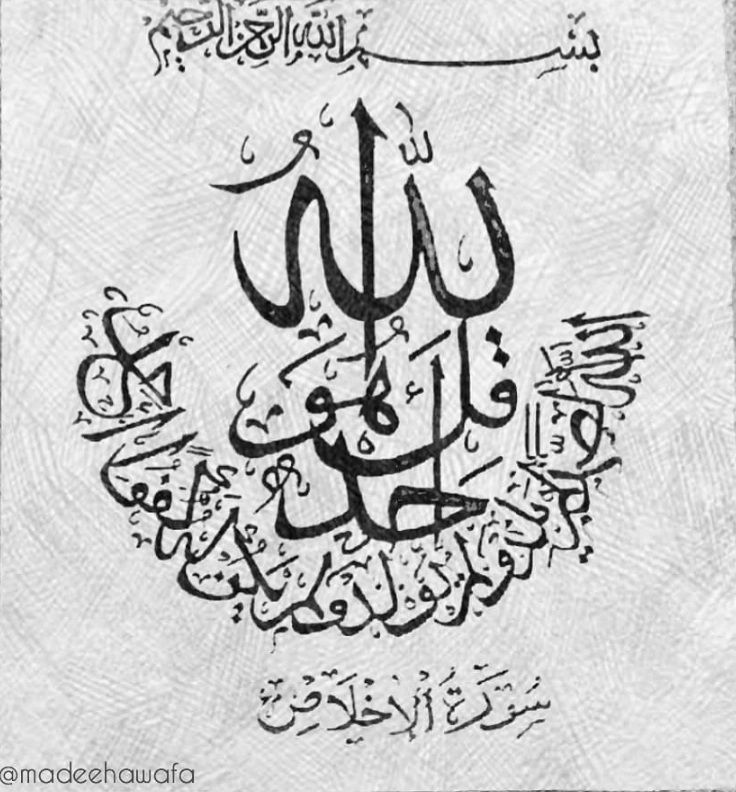 بسم الله الرحمن الرحيم
قل هو الله أحد
الله الصمد لم يلد ولم يولد ولم يكن له كفوا أحد
سُورَةُ الإخلاص
@madeehawafa